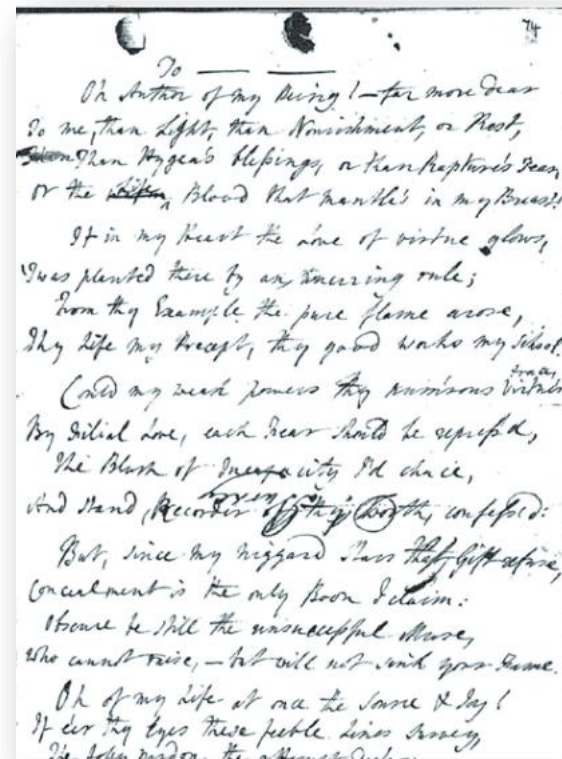 74
To —— ——
Oh Author of my Being! — far more dear
To me, than Light, than Nourishment, or Rest,
Than Hygea's blessings, or than Rapture's Tear,
Or the Blood that mantle's in my Breast!
If in my Heart the Love of virtue glows,
'Twas planted there by an unerring rule;
From thy Example the pure flame arose,
Thy Life my Precept, thy good works my School.
Could my weak powers thy numerous Virtues trace,
By Filial Love, each Fear should be repress'd,
The Blush of Incapacity I'd chace,
And stand, Recorder of thy worth, confess'd:
But, since my niggard Stars that Gift refuse,
Concealment is the only Boon I claim:
Obscure be still the unsuccessful Muse,
Who cannot raise, — but will not sink your Fame.
Oh of my Life at once the Source & Joy!
If e'er thy Eyes these feeble Lines survey,